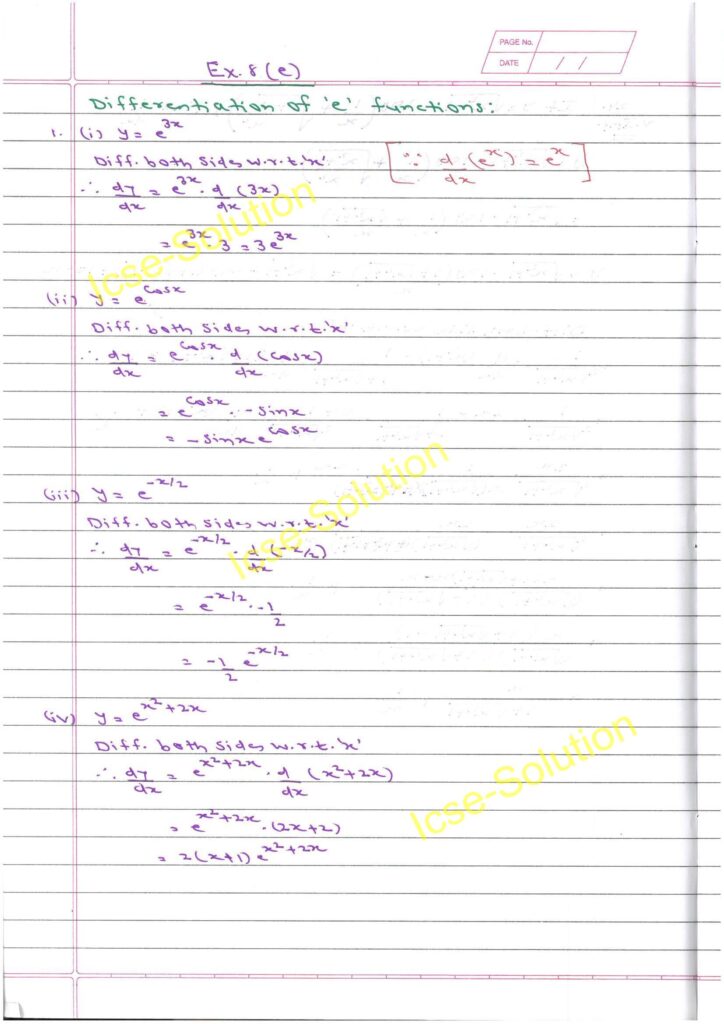 PAGE No.
DATE / /
Ex. 8 (e)
Differentiation of 'e' functions:
1. (i) y = e^{3x}
Diff. both sides w.r.t. 'x' [∵ d/dx (e^x) = e^x]
∴ dy/dx = e^{3x} · d/dx (3x)
= e^{3x} · 3 = 3e^{3x}
Icse-Solution
(ii) y = e^{cosx}
Diff. both sides w.r.t. 'x'
∴ dy/dx = e^{cosx} · d/dx (cosx)
= e^{cosx} · -sinx
= -sinx e^{cosx}
(iii) y = e^{-x/2}
Diff. both sides w.r.t. 'x'
Icse-Solution
∴ dy/dx = e^{-x/2} · d/dx (-x/2)
= e^{-x/2} · -1/2
= -1/2 e^{-x/2}
(iv) y = e^{x²+2x}
Diff. both sides w.r.t. 'x'
∴ dy/dx = e^{x²+2x} · d/dx (x²+2x)
Icse-Solution
= e^{x²+2x} · (2x+2)
= 2(x+1) e^{x²+2x}